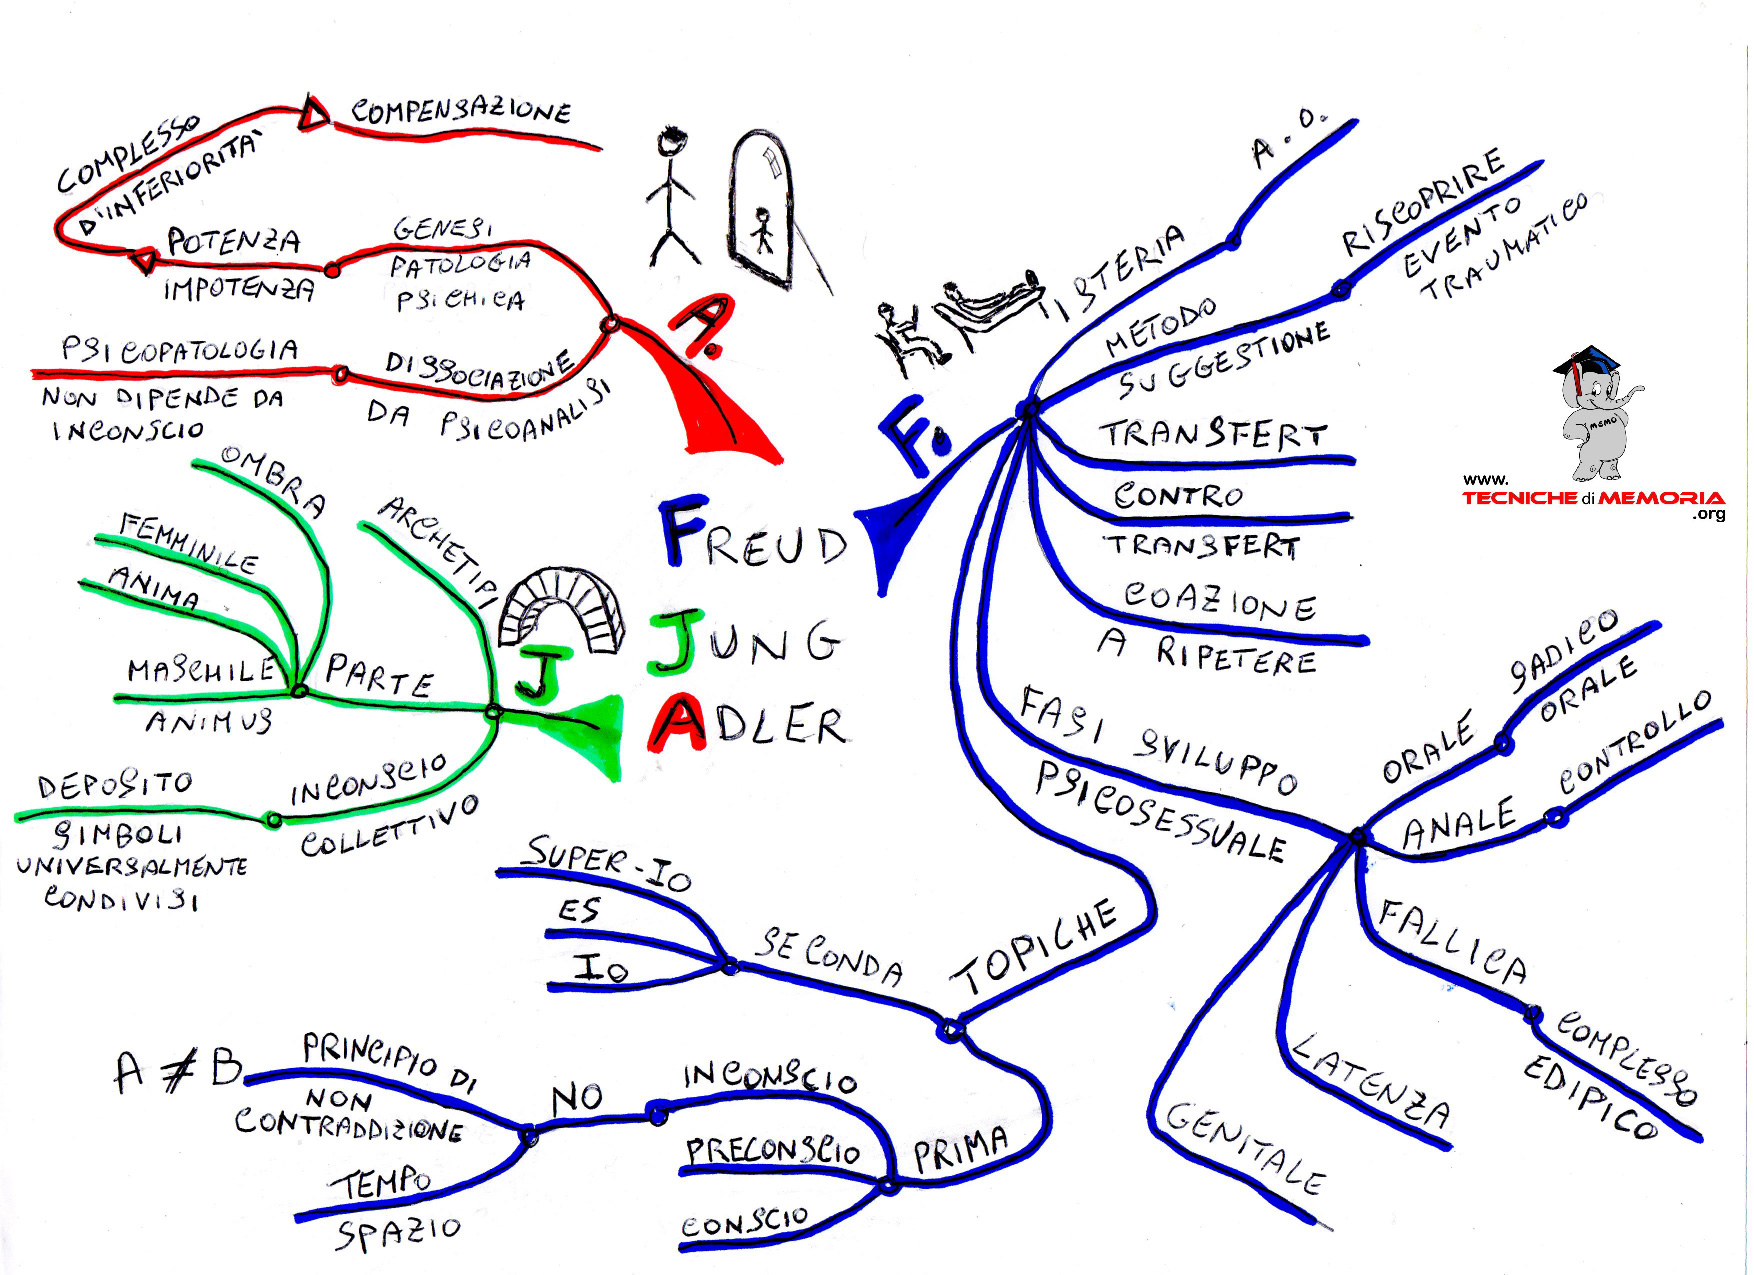 COMPENSAZIONE
COMPLESSO
D'INFERIORITA'
POTENZA
IMPOTENZA
GENESI
PATOLOGIA
PSICHICA
PSICOPATOLOGIA
NON DIPENDE DA
INCONSCIO
DISSOCIAZIONE
DA PSICOANALISI
A.
OMBRA
FEMMINILE
ANIMA
MASCHILE
ANIMUS
PARTE
ARCHETIPI
J
INCONSCIO
COLLETTIVO
DEPOSITO
SIMBOLI
UNIVERSALMENTE
CONDIVISI
FREUD
JUNG
ADLER
F.
ISTERIA
A.O.
METODO
SUGGESTIONE
RISCOPRIRE
EVENTO
TRAUMATICO
TRANSFERT
CONTRO
TRANSFERT
COAZIONE
A RIPETERE
FASI SVILUPPO
PSICOSESSUALE
ORALE
SADICO
ORALE
ANALE
CONTROLLO
FALLICA
COMPLESSO
EDIPICO
LATENZA
GENITALE
TOPICHE
SECONDA
SUPER-IO
ES
IO
PRIMA
INCONSCIO
PRECONSCIO
CONSCIO
NO
PRINCIPIO DI
NON
CONTRADDIZIONE
A ≠ B
TEMPO
SPAZIO
MEMO
www.
TECNICHE di MEMORIA
.org